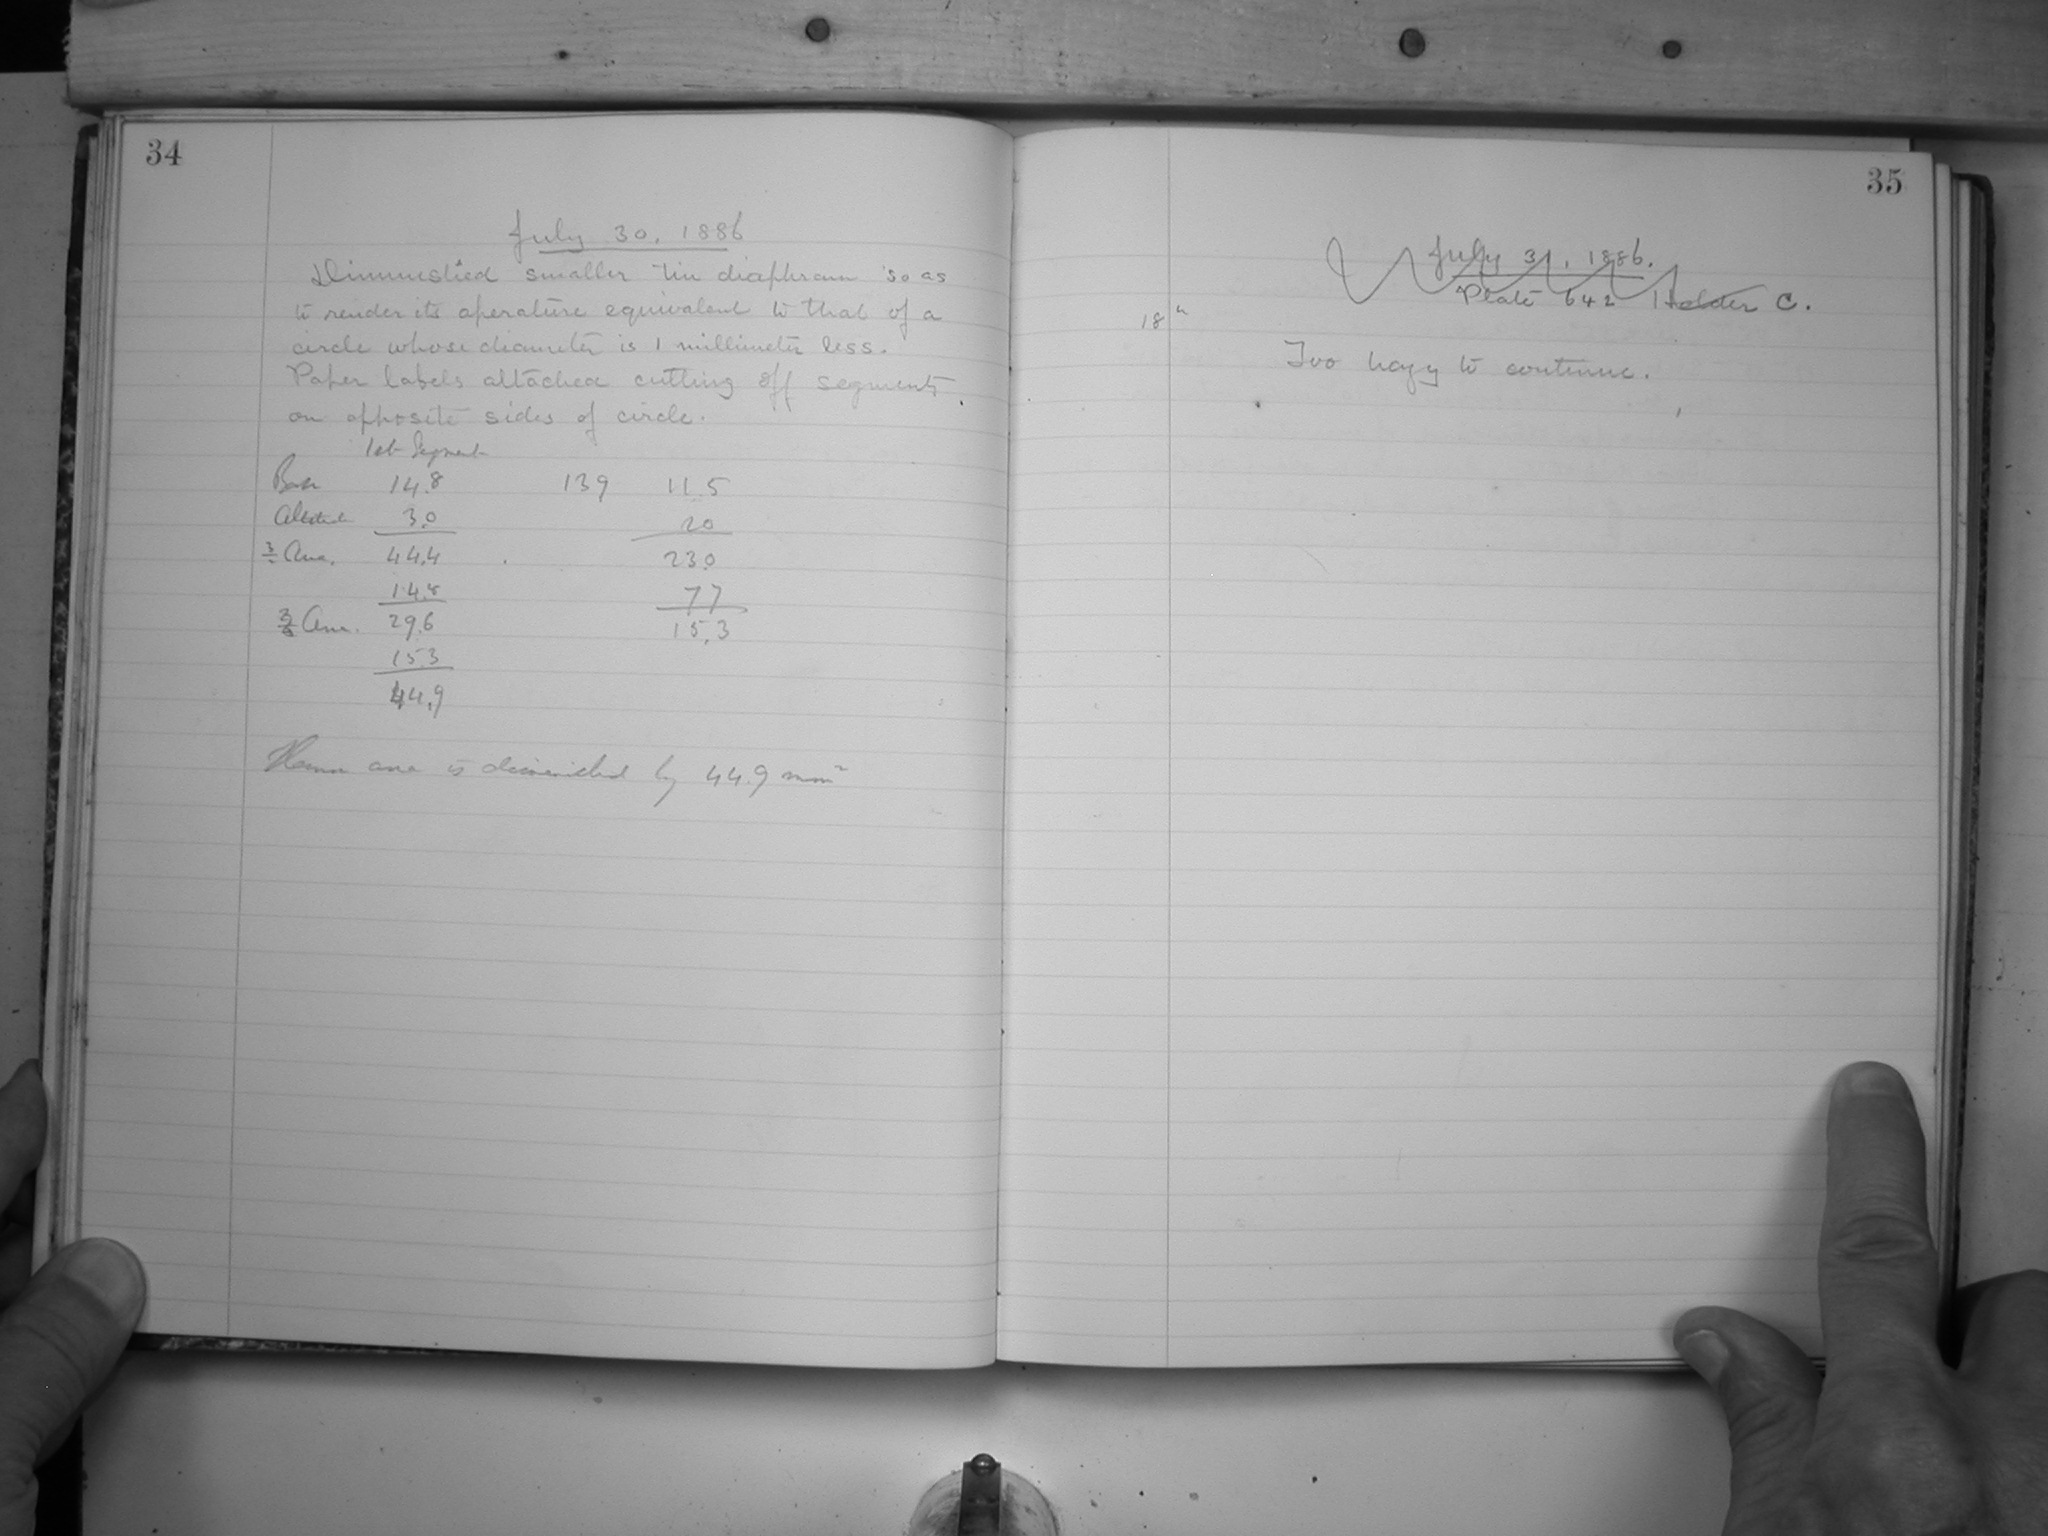 34
July 30, 1886
Diminished smaller tin diaphram so as
to render its aperature equivalent to that of a
circle whose diameter is 1 millimeter less.
Paper labels attached cutting off segments
on opposite sides of circle.
1st Segment
Base 14.8 139 11.5
Altitude 3.0 20
3/2 Area. 44.4 23.0
14.8 77
Area. 29.6 15.3
15.3
44.9
Hence area is diminished by 44.9 mm²
35
July 31, 1886.
Plate 642 Holder C.
18h
Too hazy to continue.